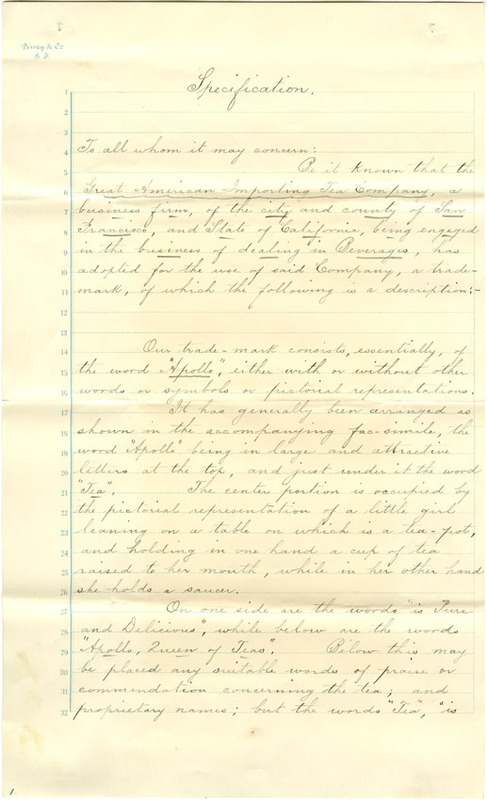 Dewey & Co.
S. F.
Specification.
1
2
3
4 To all whom it may concern:
5 Be it known that the
6 Great American Importing Tea Company, a
7 business firm, of the city and county of San
8 Francisco, and State of California, being engaged
9 in the business of dealing in Beverages, has
10 adopted for the use of said Company, a trade-
11 mark, of which the following is a description:-
12
13
14 Our trade-mark consists, essentially, of
15 the word "Apollo", either with or without other
16 words or symbols or pictorial representations.
17 It has generally been arranged as
18 shown in the accompanying fac-simile, the
19 word "Apollo" being in large and attractive
20 letters at the top, and just under it the word
21 "Tea". The center portion is occupied by
22 the pictorial representation of a little girl
23 leaning on a table on which is a tea-pot,
24 and holding in one hand a cup of tea
25 raised to her mouth, while in her other hand
26 she holds a saucer.
27 On one side are the words "is Pure
28 and Delicious", while below are the words
29 "Apollo, Queen of Teas". Below this may
30 be placed any suitable words of praise or
31 commendation concerning the tea; and
32 proprietary names; but the words "Tea", "is
1